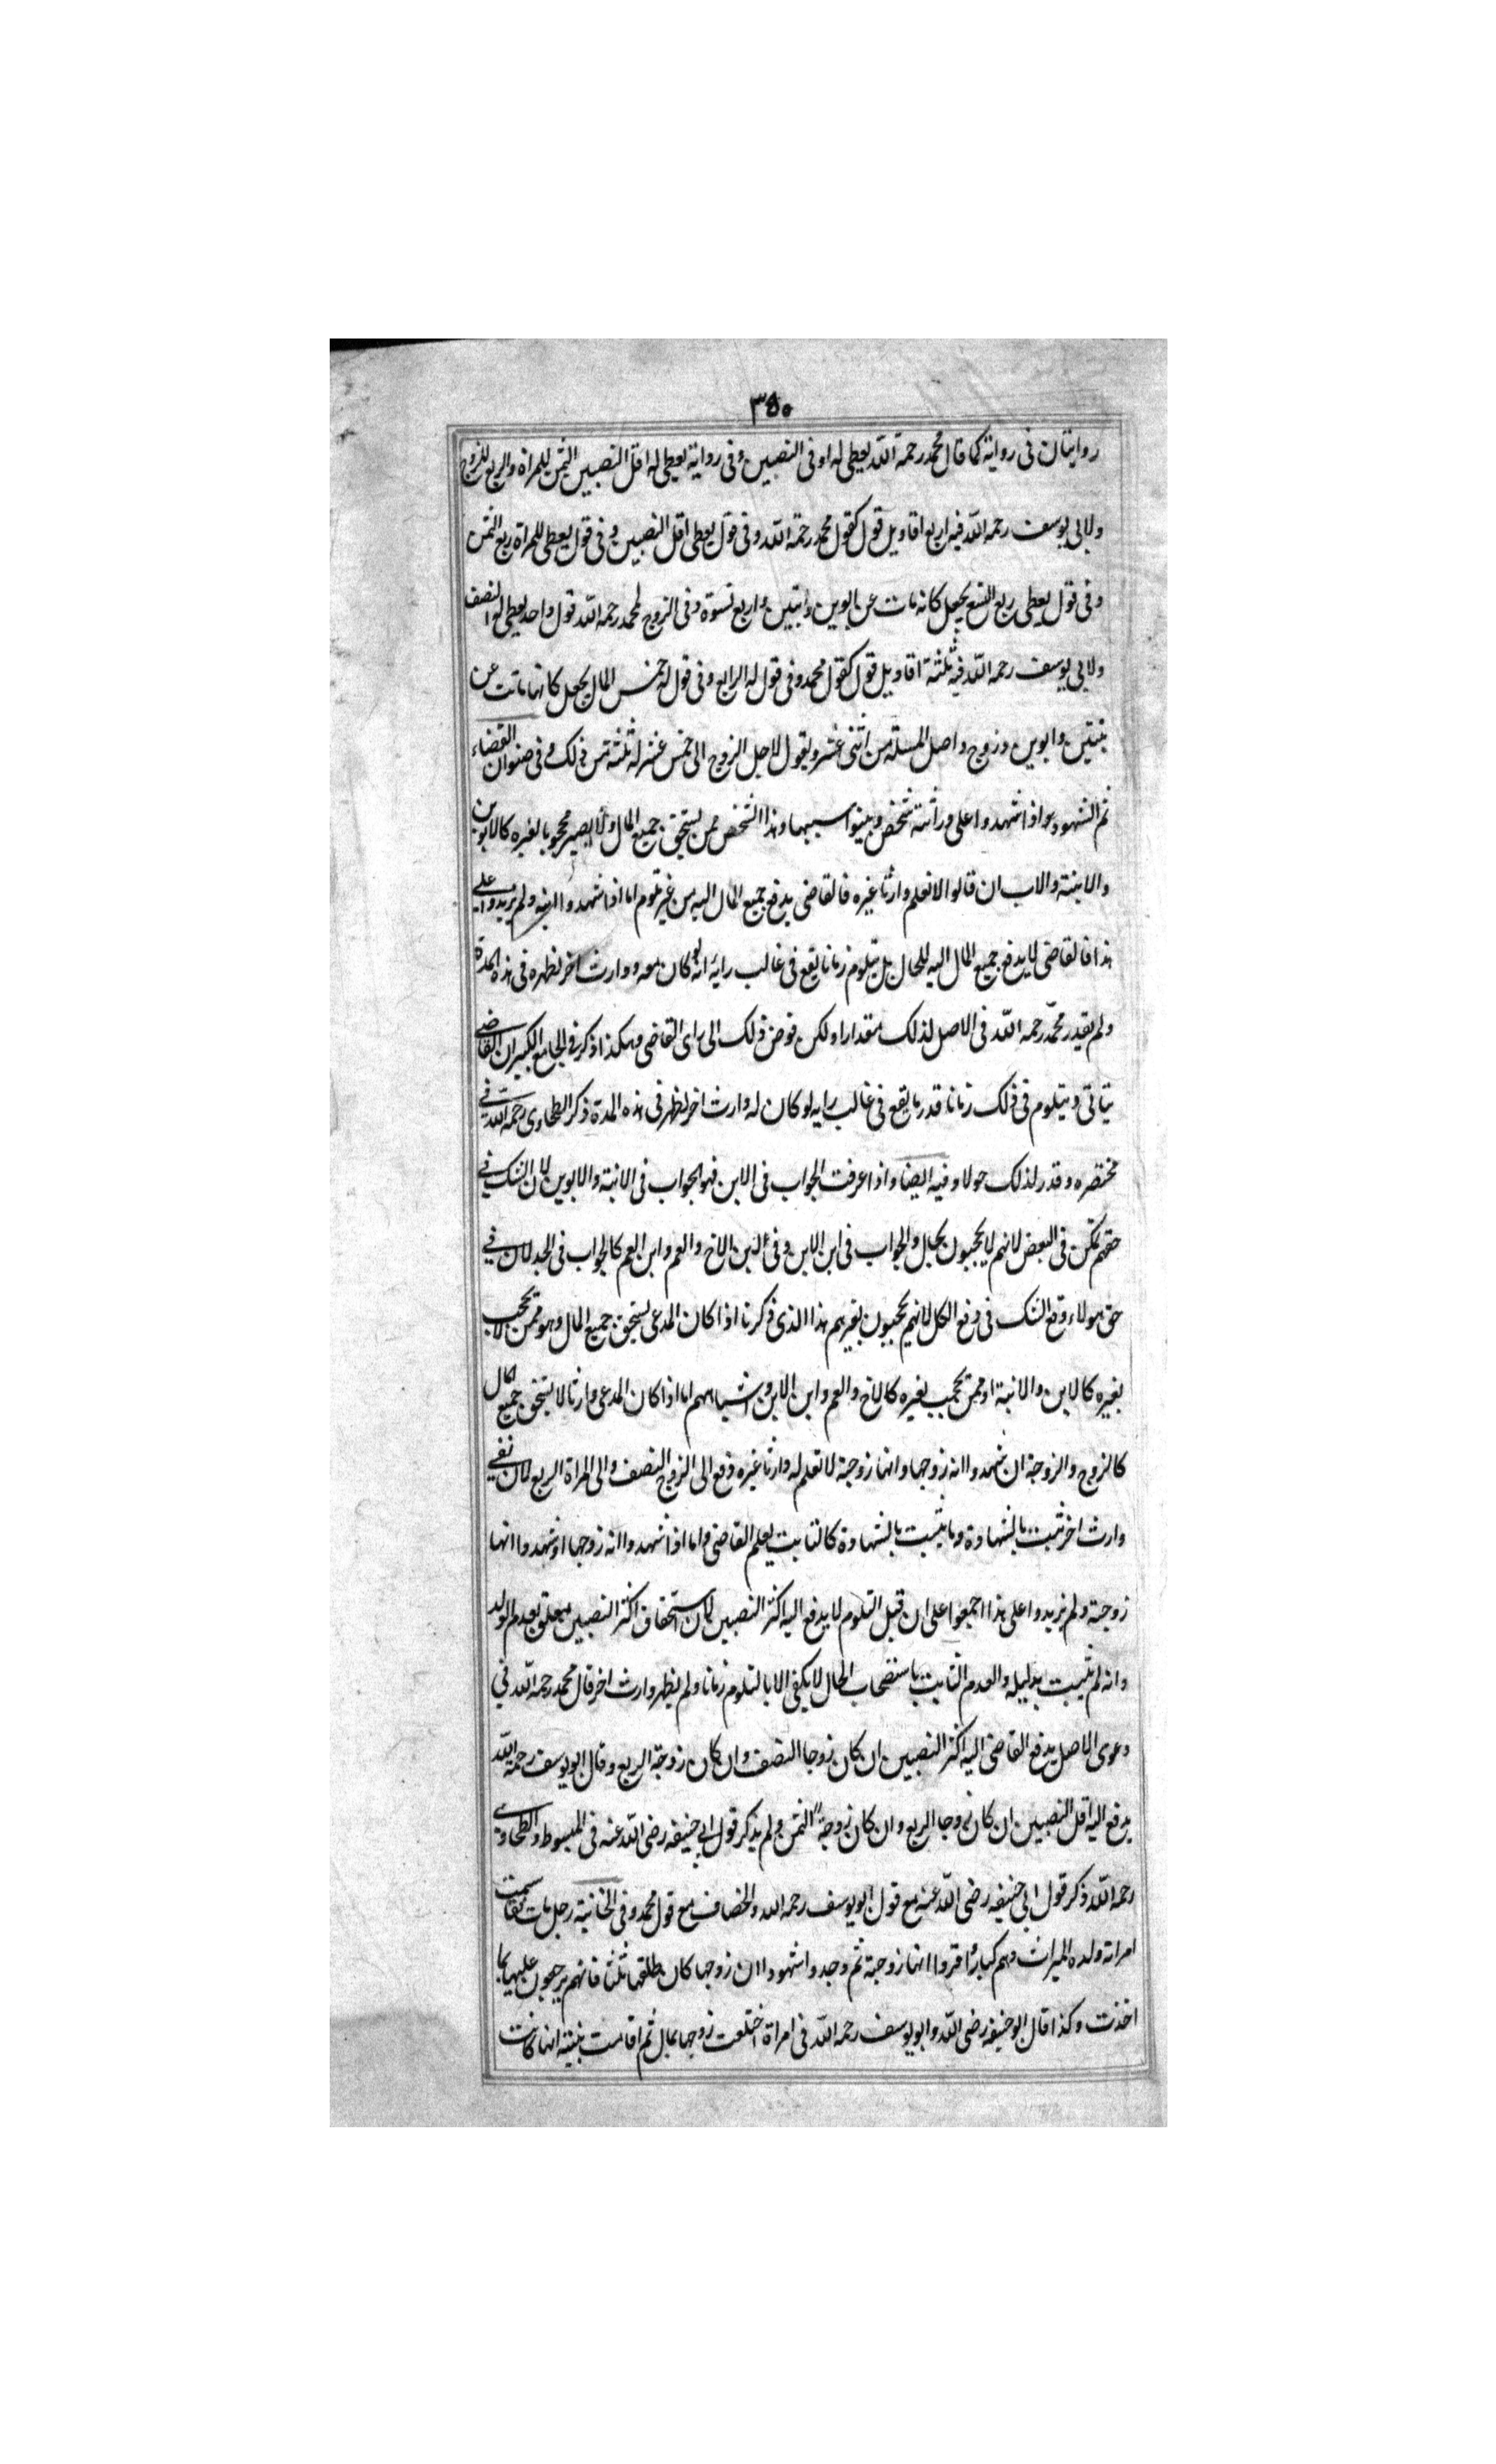 ٣٥٠
روايتان فى رواية كما قال محمد رحمة الله يعطى له اوفى النصيبين وفى رواية يعطى له اقل النصيبين الثمن للمراة والربع للزوج
ولابى يوسف رحمه الله فيه اربع اقاويل قول كقول محمد رحمة الله وفى قول يعطى اقل النصيبين وفى قول يعطى للمراة ربع الثمن
وفى قول يعطى ربع التسع يجعل كانه مات عن ابوين وابنتين واربع نسوة وفى الزوج لمحمد رحمه الله قول واحد يعطى له النصف
ولابى يوسف رحمه الله فيه ثلثة اقاويل قول كقول محمد وفى قول له الربع وفى قول له خمس المال يجعل كانها ماتت عن
بنتين وابوين وزوج واصل المسئلة من اثنى عشر ويعول لاجل الزوج الى خمس عشر له ثلثة من ذلك وفى صنوان القضاء
ثم الشهود اذا شهدوا على وراثة شخص وبينوا سببها وهذا الشخص ممن يستحق جميع المال ولا يصير محجوبا بغيره كالابوين
والابنة والاب ان قالوا لا نعلم وارثا غيره فالقاضى يدفع جميع المال اليه من غير تلوم اما اذا شهدوا انه ابنه ولم يزيدوا على
هذا فالقاضى لا يدفع جميع المال اليه للحال بل يتلوم زمانا يقع فى غالب رايه انه لو كان معه وارث اخر لظهر فى هذه المدة
ولم يقدر محمد رحمه الله فى الاصل لذلك مقدارا ولكن فوض ذلك الى راى القاضى وهكذا ذكر فى الجامع الكبير ان القاضى
يتانى ويتلوم فى ذلك زمانا قدر ما يقع فى غالب رايه لو كان له وارث اخر لظهر فى هذه المدة ذكر الطحاوى رحمه الله فى
مختصره وقدر لذلك حولا وفيه ايضا واذا عرفت الجواب فى الابن فهو الجواب فى الابنة والابوين لان الشك فى
حقهم تمكن فى البعض لانهم لا يحجبون بحال والجواب فى ابن الابن وفى ابن الاخ والعم وابن العم كالجواب فى الجد لان فى
حق هولاء وقع الشك فى دفع الكل لانهم يحجبون بغيرهم هذا الذى ذكرنا اذا كان المدعى يستحق جميع المال وهو ممن لا يحجب
بغيره كالابن والابنة او ممن يحجب بغيره كالاخ والعم وابن الابن واشباههم اما اذا كان المدعى وارثا لا يستحق جميع المال
كالزوج والزوجة ان شهدوا انه زوجها وانها زوجة لا نعلم له وارثا غيره دفع الى الزوج النصف والى المراة الربع لان نفى
وارث اخر ثبت بالشهادة وما يثبت بالشهادة كالثابت بعلم القاضى واما اذا شهدوا انه زوجها او شهدوا انها
زوجة ولم يزيدوا على هذا اجمعوا على ان قبل التلوم لا يدفع اليه اكثر النصيبين لان استحقاق اكثر النصيبين معلق بعدم الولد
وانه لم يثبت بدليله والعدم الثابت باستصحاب الحال لا يكفى الا بالتلوم زمانا ولم يظهر وارث اخر قال محمد رحمه الله فى
دعوى الاصل يدفع القاضى اليه اكثر النصيبين ان كان زوجا النصف وان كان زوجة الربع وقال ابو يوسف رحمه الله
يدفع اليه اقل النصيبين ان كان زوجا الربع وان كان زوجة الثمن ولم يذكر قول ابى حنيفه رضى الله عنه فى المبسوط والطحاوى
رحمه الله ذكر قول ابى حنيفه رضى الله عنه مع قول ابو يوسف رحمه الله والخصاف مع قول محمد وفى الخانية رجل مات فقاسمت
امراته ولده الميراث وهم كبار اقروا انها زوجة ثم وجدوا شهودا ان زوجها كان طلقها ثلثا فانهم يرجعون عليها بما
اخذت وكذا قال ابو حنيفه رضى الله وابو يوسف رحمه الله فى امراة اختلعت زوجها بمال ثم اقامت بينة انها كانت